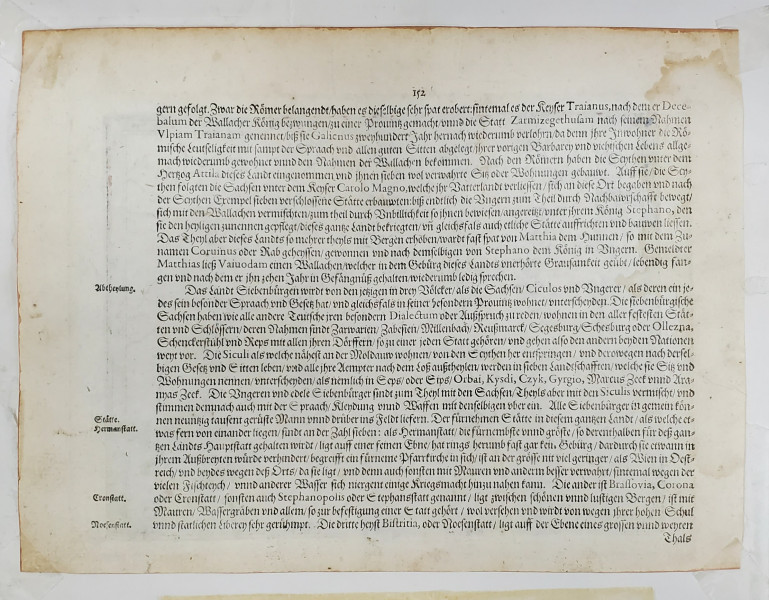 152
gern gefolgt. Zwar die Römer belangendt/haben es dieselbige sehr spat erobert: sintemal es der Keyser Traianus, nach dem er Dece-
balum der Wallacher König bezwungen/zu einer Prouintz gemacht/vnnd die Statt Zarmizegethusam nach seinem Nahmen
Vlpiam Traianam genennet/biß sie Galienus zweyhundert Jahr hernach wiederumb verlohrn/da denn ihre Inwohner die Rö-
mische Leutseligkeit mit sampt der Spraach vnd allen guten Sitten abgelegt/ihrer vorigen Barbarey vnd viehischen Lebens allge-
mach wiederumb gewohnet vnnd den Nahmen der Wallachen bekommen. Nach den Römern haben die Scythen vnter dem
Hertzog Attila dieses Landt eingenommen vnd ihnen selben wol verwahrte Sitz oder Wohnungen gebauwt. Auff sie/die Scy-
then folgten die Sachsen vnter dem Keyser Carolo Magno, welche ihr Vatterlandt verliessen/sich an diese Ort begaben vnd nach
der Scythen Exempel sieben verschlossene Stätte erbauwten: biß endtlich die Vngern zum Theil durch Nachbawrschafft bewegt/
sich mit den Wallachen vermischten/zum theil durch Vnbillichkeit so ihnen bewiesen/angereitzt/vnter ihrem König Stephano, den
sie den heyligen zunennen gepflegt/dieses gantze Landt bekriegten/vñ gleichsfals auch etliche Stätte auffrichten vnd bauwen liessen.
Das Theyl aber dieses Landts so mehrer theyls mit Bergen erhöben/wardt fast spat von Matthia dem Hunnen/so mit dem Zu-
namen Coruinus oder Rab geheyssen/gewonnen vnd nach demselbigen von Stephano dem König in Vngern. Gemeldter
Matthias ließ Vaiuodam einen Wallachen/welcher in dem Gebürg dieses Landts vnerhörte Grausamkeit geübt/lebendig fan-
gen vnd nach dem er ihn zehen Jahr in Gefängnuß gehalten wiederumb ledig sprechen.
Abtheylung.
Das Landt Siebenbürgen wirdt von den jetzigen in drey Völcker/als die Sachsen/Ciculos vnd Vngerer/als deren ein je-
des sein besonder Spraach vnd Gesetz hat/vnd gleichsfals in seiner besondern Prouintz wohnet/vnterscheyden. Die siebenbürgische
Sachsen haben wie alle andere Teutsche jren besondern Dialectum oder Außspruch zu reden/wohnen in den aller festesten Stät-
ten vnd Schlössern/deren Nahmen sindt Zarwarien/Zabesien/Millenbach/Reußmarck/Segesburg/Schesburg oder Ollezna,
Schenckerstühl vnd Reps mit allen ihren Dörffern/so zu einer jeden Statt gehören/vnd gehen also den andern beyden Nationen
weyt vor. Die Siculi als welche nähest an der Moldauw wohnen/von den Scythen her entspringen/vnd derowegen nach dersel-
bigen Gesetz vnd Sitten leben/vnd alle ihre Aempter nach dem Loß außtheylen/werden in sieben Landtschafften/welche sie Sitz vnd
Wohnungen nennen/vnterscheyden/als nemlich in Seps/oder Syps/Orbai, Kysdi, Czyk, Gyrgio, Marcus Zeek vnnd Ara-
nyas Zeek. Die Vngeren vnd edele Siebenbürger sindt zum Theyl mit den Sachsen/Theyls aber mit den Siculis vermischt/vnd
stimmen demnach auch mit der Spraach/Kleydung vnnd Waffen mit denselbigen vber ein. Alle Siebenbürger in gemein kön-
nen neuntzig tausent gerüste Mann vnnd drüber ins Feldt liefern. Der fürnehmen Stätte in diesem gantzen Landt/als welche et-
Stätte.
Hermanstatt.
was fern von einander liegen/sindt an der Zahl sieben: als Hermanstatt/die fürnembste vnnd gröste/so derenthalben für deß gan-
tzen Landts Hauptstatt gehalten wirdt/ligt auff einer feinen Ebne/hat rings herumb fast gar kein Gebürg/dardurch sie etwann in
jhrem Außbreyten würde verhindert/begreifft ein fürneme Pfarrkirche in sich/ist an der grösse nit viel geringer/als Wien in Oest-
reich/vnd beydes wegen deß Orts/da sie ligt/vnd denn auch sonsten mit Mauren vnd anderm besser verwahrt/sintemal wegen der
vielen Fischteych/vnnd anderer Wasser sich niergent einige Kriegsmacht hinzu nahen kann. Die ander ist Brassovia, Corona
Cronstatt.
oder Cronstatt/sonsten auch Stephanopolis oder Stephansstatt genannt/ligt zwischen schönen vnnd lustigen Bergen/ist mit
Mauren/Wassergräben vnd allem/so zur befestigung einer Statt gehört/wol versehen vnd wirdt von wegen jhrer hohen Schul
Noesenstatt.
vnnd stattlichen Liberey sehr gerühmpt. Die dritte heyst Bistritia, oder Noesenstatt/ligt auff der Ebene eines grossen vnnd weyten
Thals